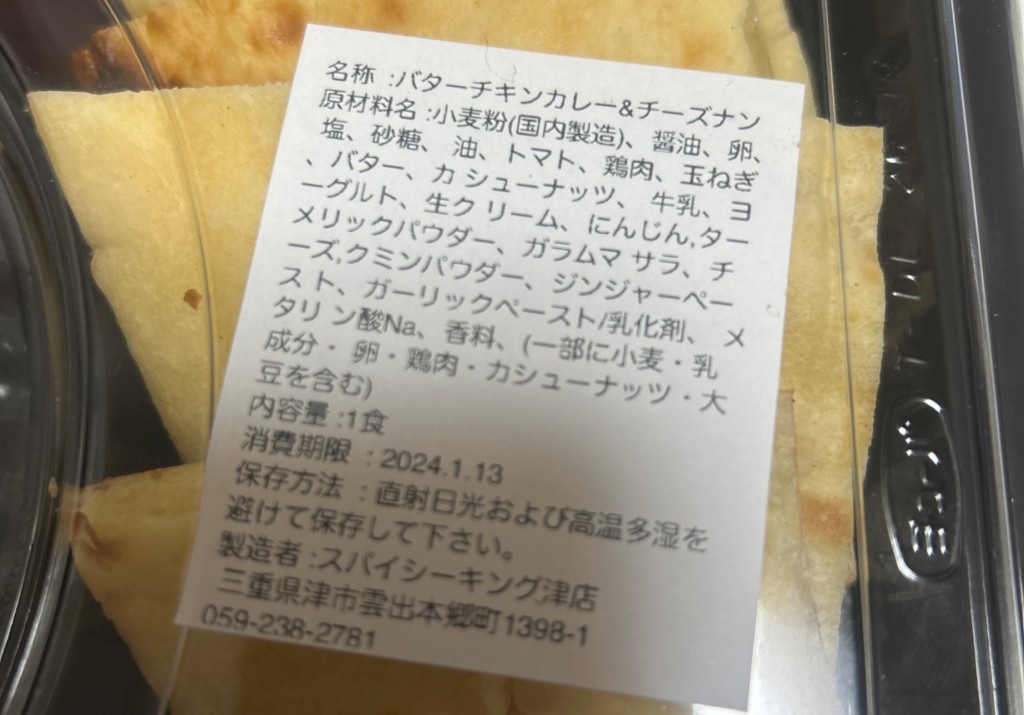 名称 :バターチキンカレー&チーズナン
原材料名 :小麦粉(国内製造)、醤油、卵、
塩、砂糖、油、トマト、鶏肉、玉ねぎ
、バター、カシューナッツ、牛乳、ヨ
ーグルト、生クリーム、にんじん,ター
メリックパウダー、ガラムマサラ、チ
ーズ,クミンパウダー、ジンジャーペー
スト、ガーリックペースト/乳化剤、メ
タリン酸Na、香料、(一部に小麦・乳
成分・卵・鶏肉・カシューナッツ・大
豆を含む)
内容量 :1食
消費期限 : 2024.1.13
保存方法 : 直射日光および高温多湿を
避けて保存して下さい。
製造者 :スパイシーキング津店
三重県津市雲出本郷町1398-1
059-238-2781